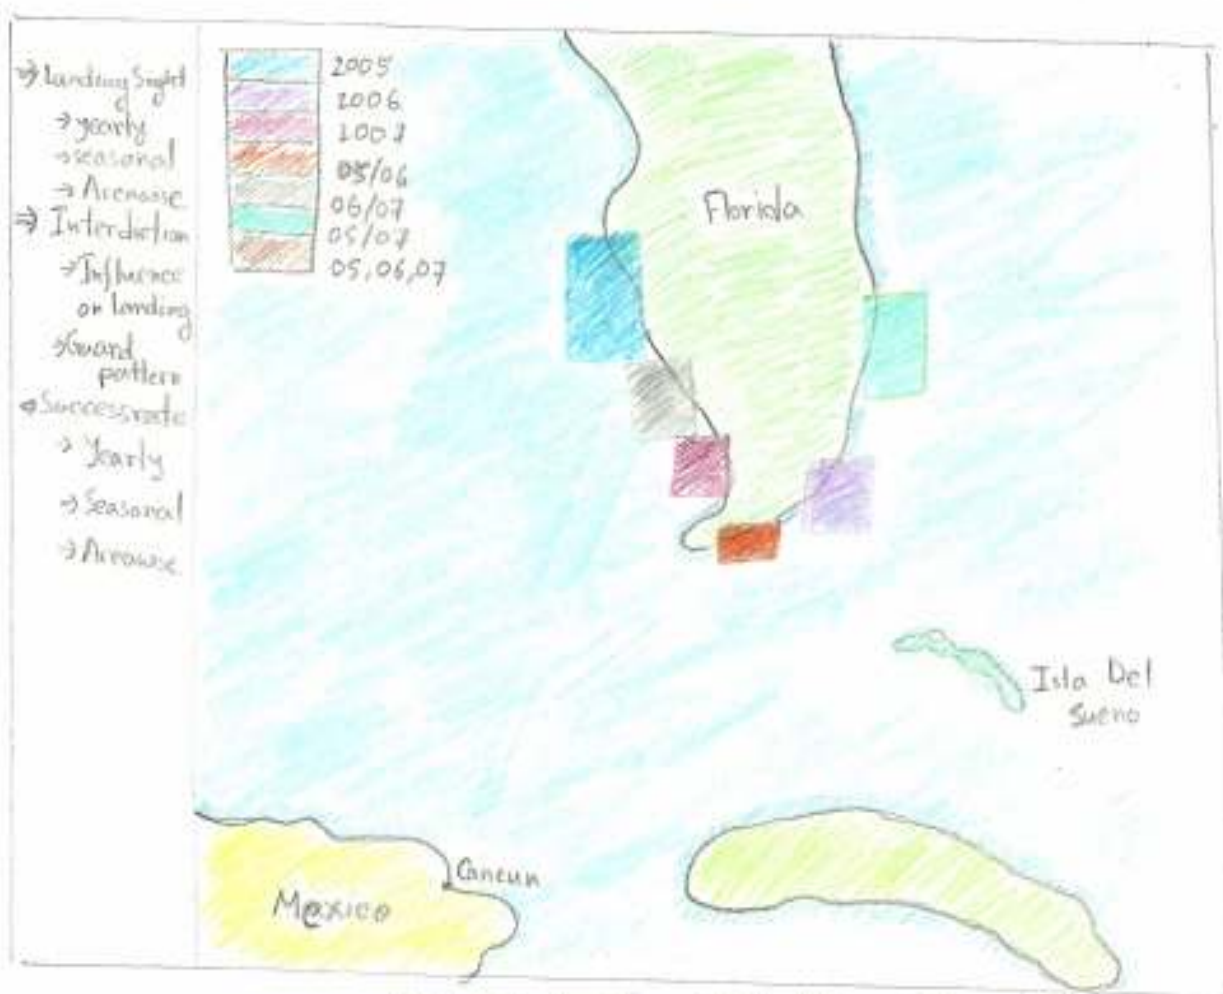 ⇒ Landing Sight
→ yearly
→ seasonal
→ Areawise
⇒ Interdiction
→ Influence
on landing
→ Guard
pattern
Successrate
→ Yearly
→ Seasonal
→ Areawise
2005
2006
2007
05/06
06/07
05/07
05,06,07
Florida
Isla Del
Sueno
Cancun
Mexico